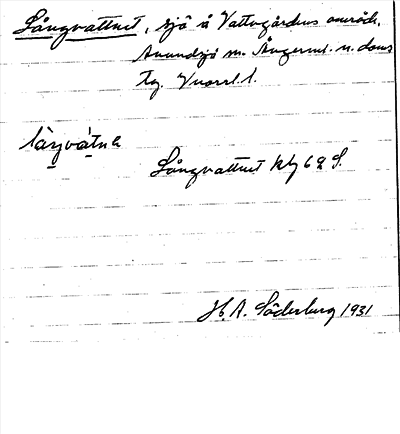 Långvattnet, sjö å Vattugårdens område,
Anundsjö sn. Ångerml. n. doms
tg. Vnorrl. l.
làŋvátnɐ
Långvattnet kbl 62 S.
H. A. Söderberg 1931